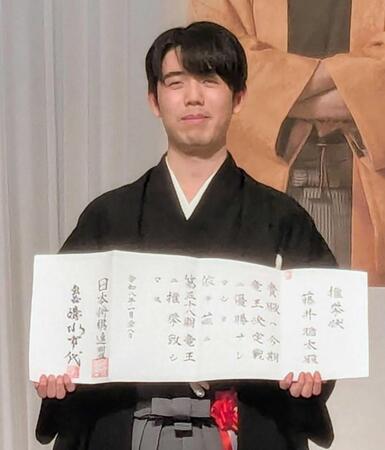 推挙状
藤井聡太殿
貴殿ハ今期
竜王決定戦
ニ優勝サレ
マシタ
依テ茲ニ
第三十八期竜王
ニ推挙致シ
マス
令和八年一月八日
日本将棋連盟
清水市代